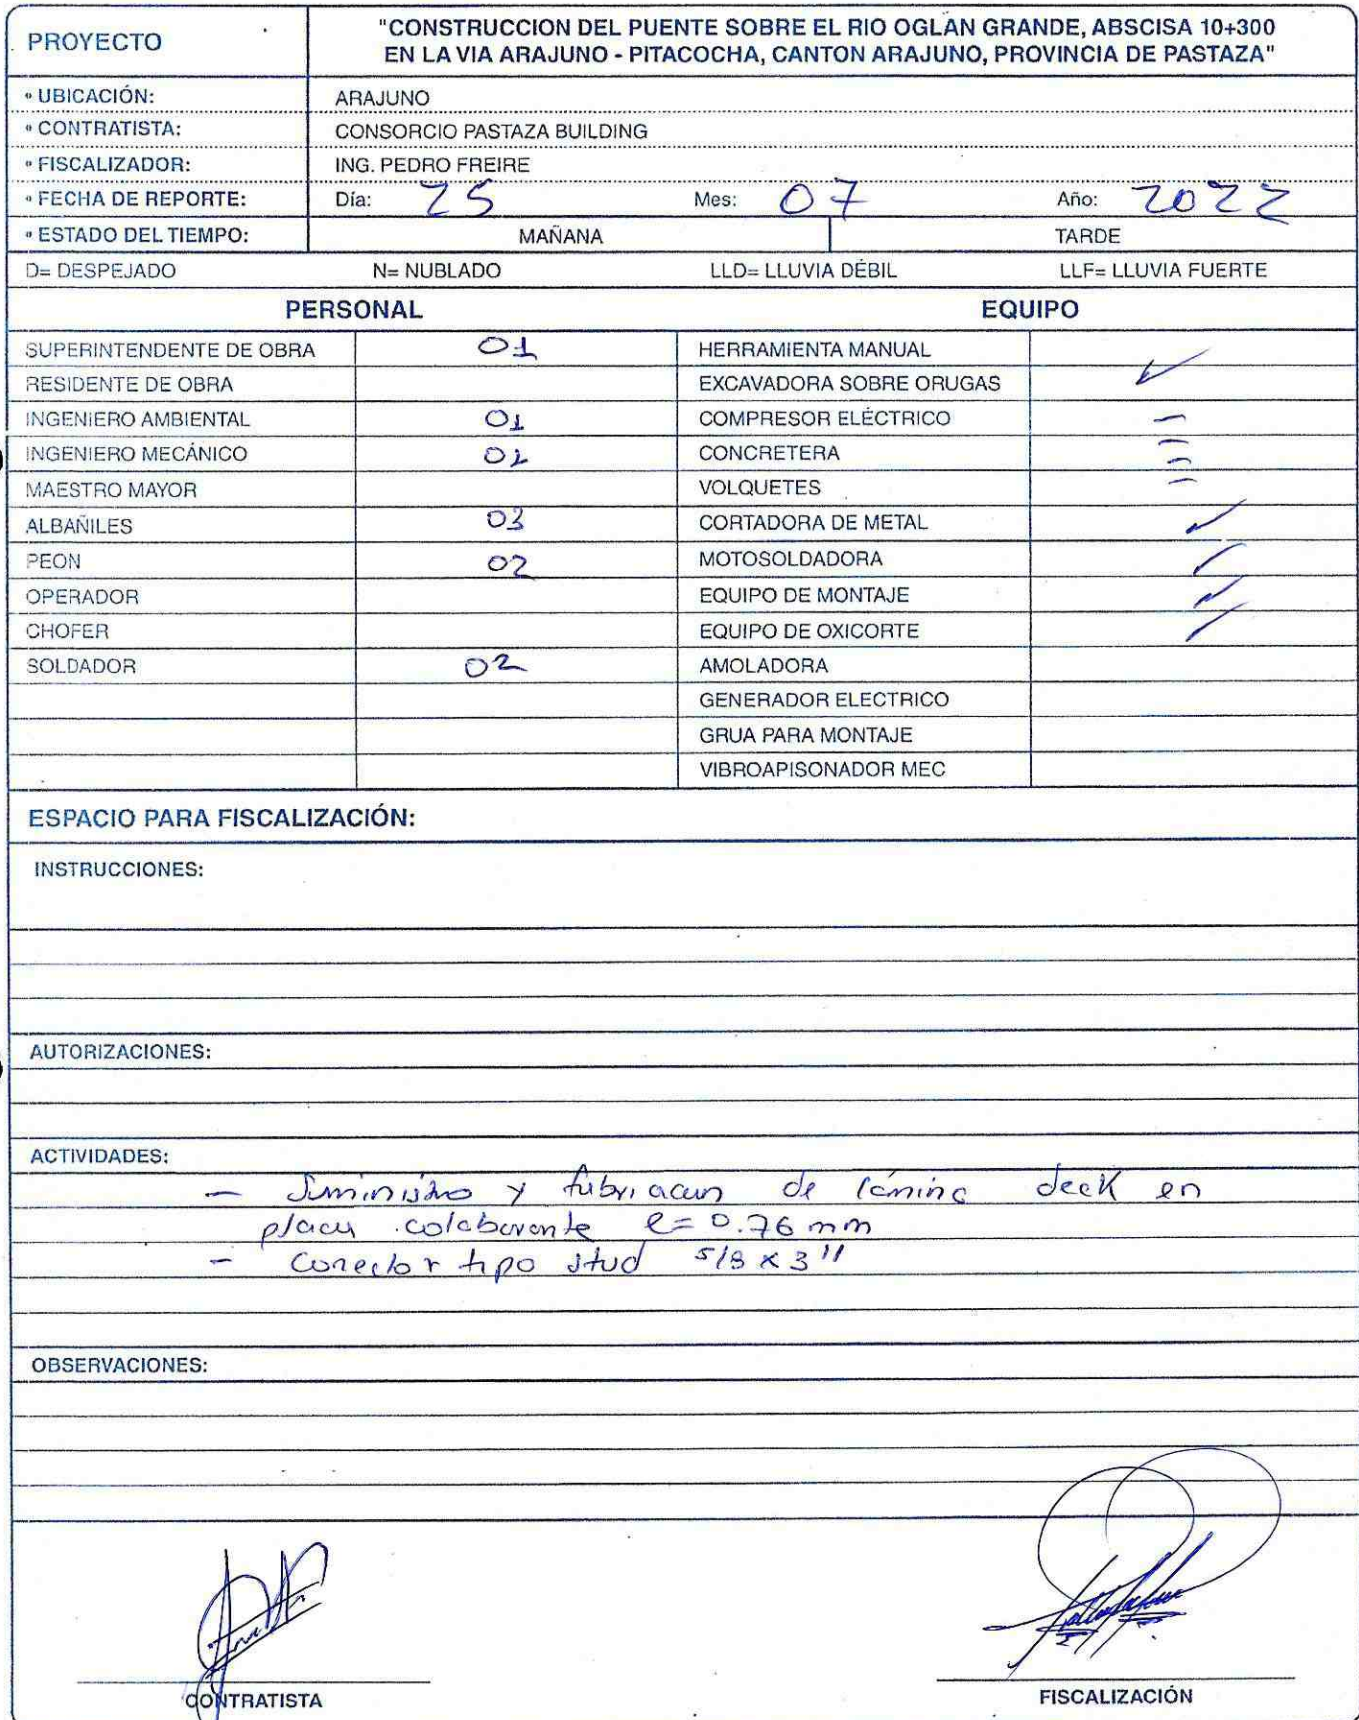 PROYECTO
"CONSTRUCCION DEL PUENTE SOBRE EL RIO OGLAN GRANDE, ABSCISA 10+300
EN LA VIA ARAJUNO - PITACOCHA, CANTON ARAJUNO, PROVINCIA DE PASTAZA"
• UBICACIÓN: ARAJUNO
• CONTRATISTA: CONSORCIO PASTAZA BUILDING
• FISCALIZADOR: ING. PEDRO FREIRE
• FECHA DE REPORTE: Día: 25 Mes: 07 Año: 2022
• ESTADO DEL TIEMPO: MAÑANA TARDE
D= DESPEJADO N= NUBLADO LLD= LLUVIA DÉBIL LLF= LLUVIA FUERTE
PERSONAL EQUIPO
SUPERINTENDENTE DE OBRA 01 HERRAMIENTA MANUAL
RESIDENTE DE OBRA EXCAVADORA SOBRE ORUGAS ✓
INGENIERO AMBIENTAL 01 COMPRESOR ELÉCTRICO –
INGENIERO MECÁNICO 01 CONCRETERA =
MAESTRO MAYOR VOLQUETES =
ALBAÑILES 03 CORTADORA DE METAL ✓
PEON 02 MOTOSOLDADORA ✓
OPERADOR EQUIPO DE MONTAJE ✓
CHOFER EQUIPO DE OXICORTE ✓
SOLDADOR 02 AMOLADORA
GENERADOR ELECTRICO
GRUA PARA MONTAJE
VIBROAPISONADOR MEC
ESPACIO PARA FISCALIZACIÓN:
INSTRUCCIONES:
AUTORIZACIONES:
ACTIVIDADES:
– Suministro y fabricacun de lámina deck en
placa colaborante e= 0.76 mm
– Conector tipo stud 5/8 x 3"
OBSERVACIONES:
CONTRATISTA FISCALIZACIÓN